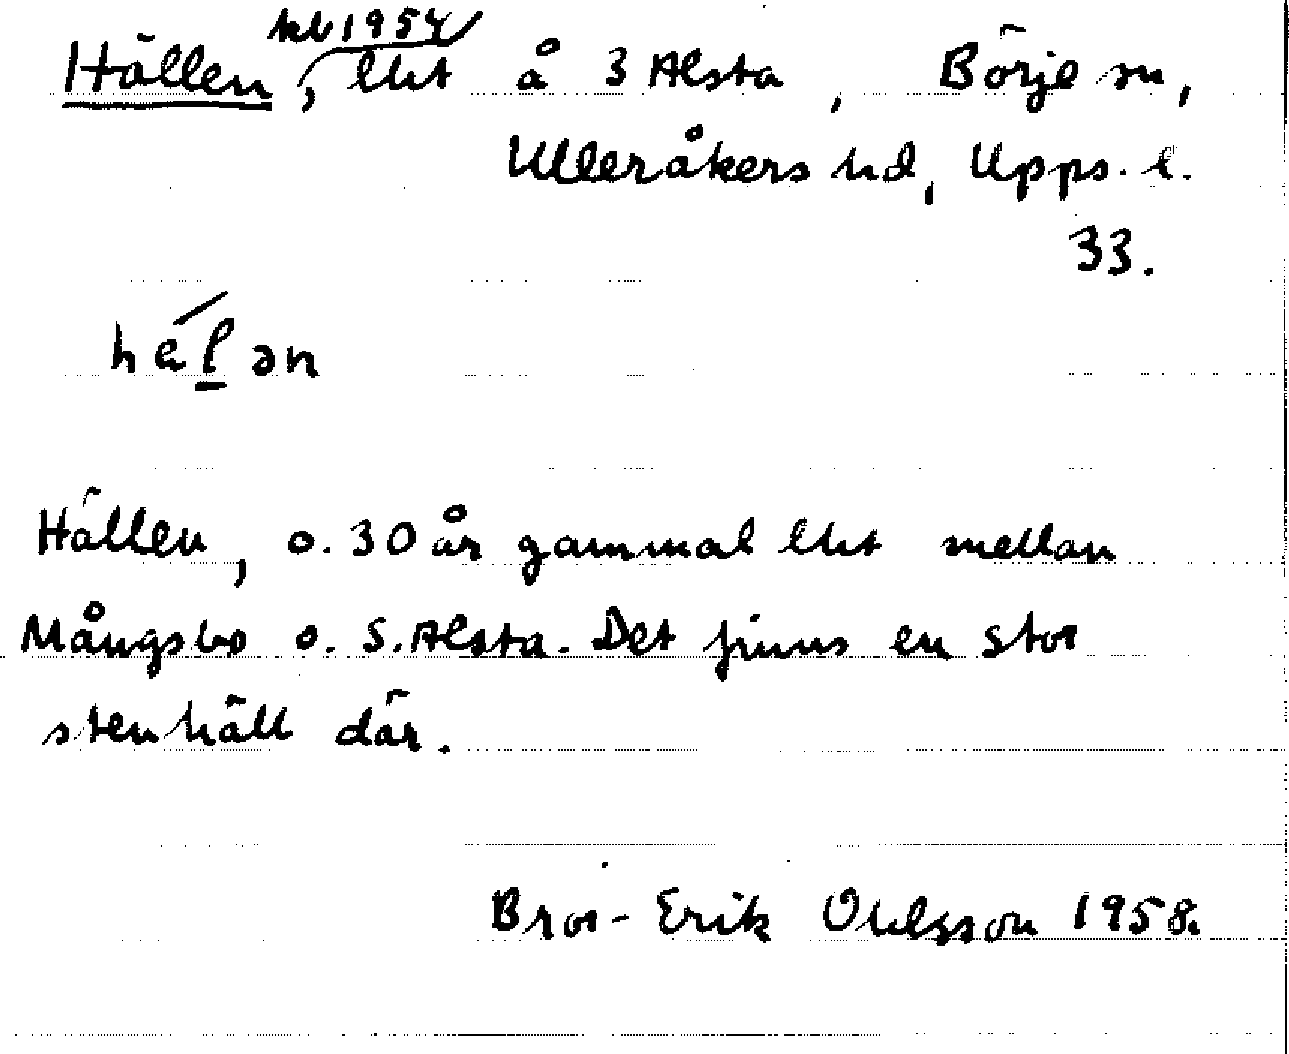 kb 1954
Hällen, lht å 3 Alsta, Börje sn,
Ulleråkers hd, Upps. l.
33.
hel̲ən
Hällen, o. 30 år gammal lht mellan
Mångsbo o. S. Alsta. Det finns en stor
stenhäll där.
Bror-Erik Ohlsson 1958.